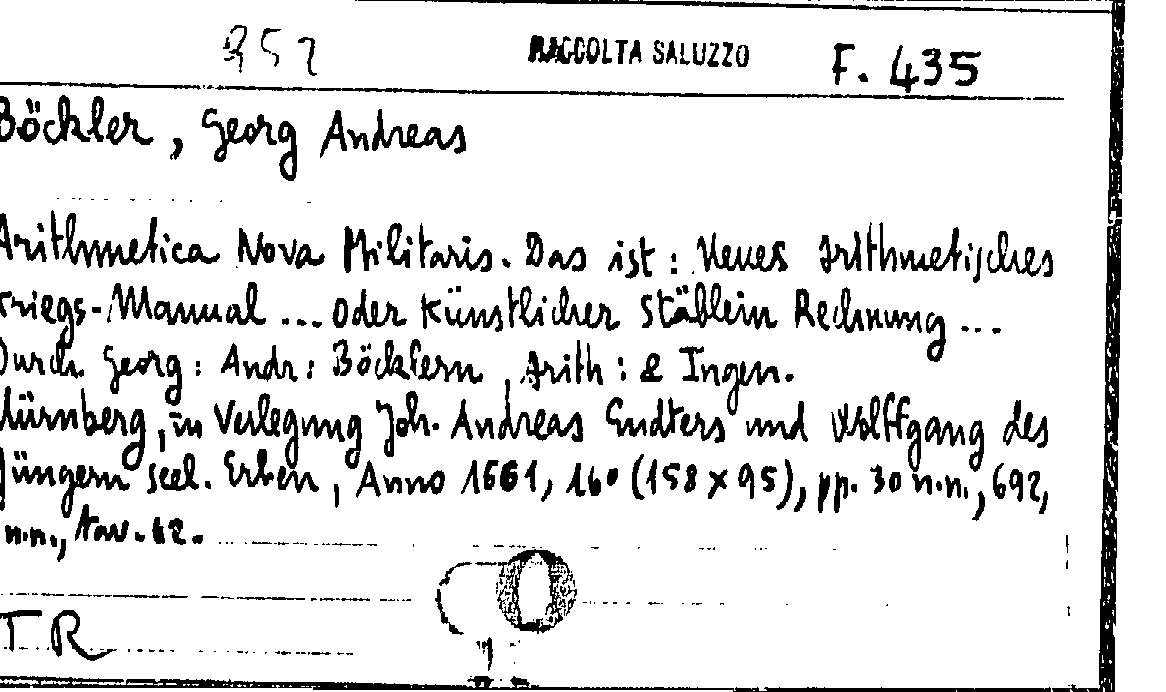 952 RACCOLTA SALUZZO F. 435
Böckler, Georg Andreas
Arithmetica Nova Militaris. Das ist: Neues Arithmetisches
Kriegs-Manual ... oder Künstlicher Stäblein Rechnung ...
Durch Georg: Andr: Böcklern, Arith: & Ingen.
Nürnberg, in Verlegung Joh. Andreas Endters und Wolffgang des
Jüngern seel. Erben, Anno 1661, 16º (158 x 95), pp. 30 n.n., 692,
n.n., tav. 62.
TR